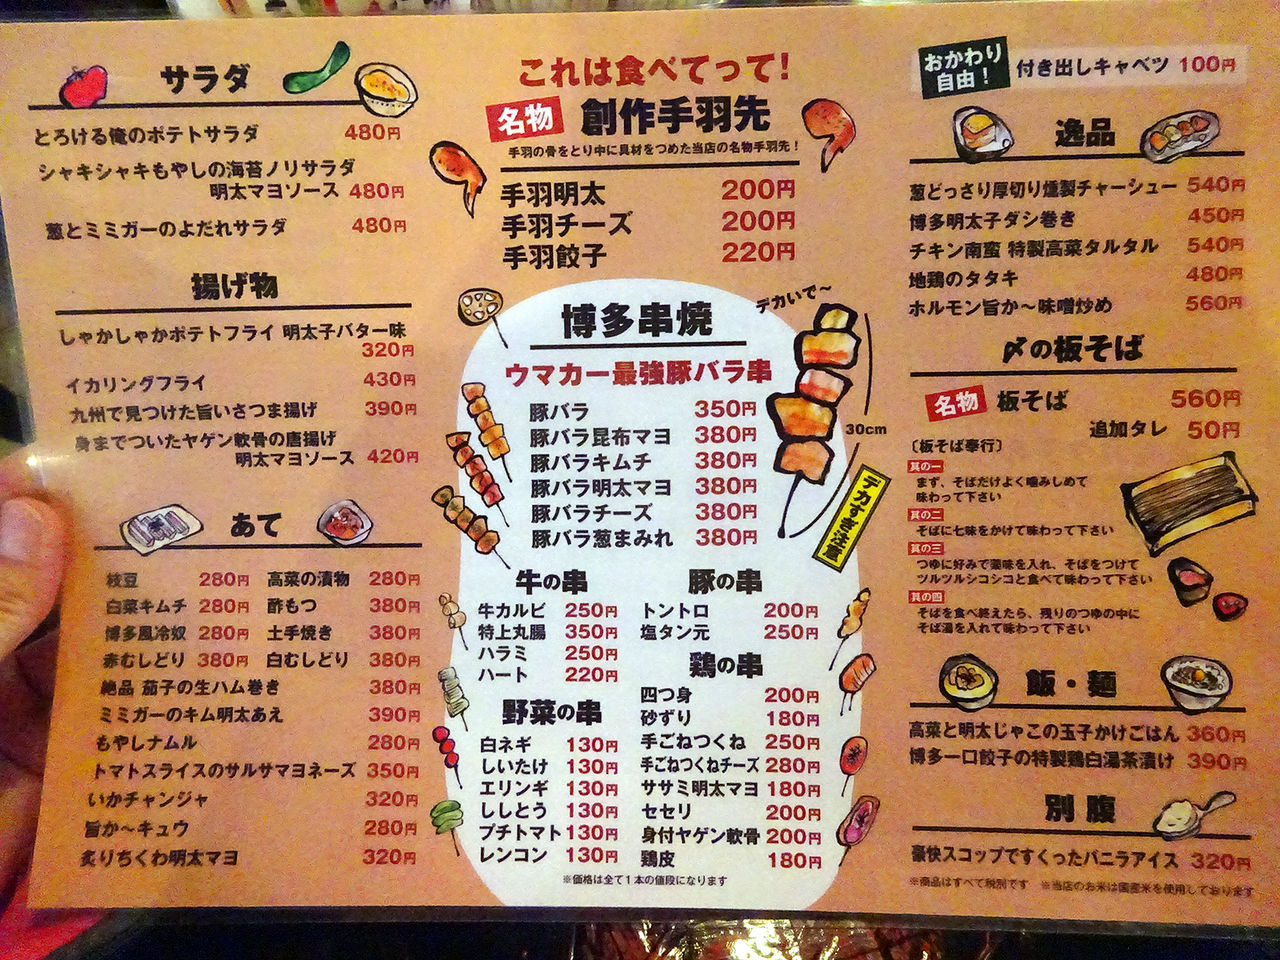 サラダ
とろける俺のポテトサラダ 480円
シャキシャキもやしの海苔ノリサラダ
明太マヨソース 480円
葱とミミガーのよだれサラダ 480円
揚げ物
しゃかしゃかポテトフライ 明太子バター味
320円
イカリングフライ 430円
九州で見つけた旨いさつま揚げ 390円
身までついたヤゲン軟骨の唐揚げ
明太マヨソース 420円
あて
枝豆 280円 高菜の漬物 280円
白菜キムチ 280円 酢もつ 380円
博多風冷奴 280円 土手焼き 380円
赤むしどり 380円 白むしどり 380円
絶品 茄子の生ハム巻き 380円
ミミガーのキム明太あえ 390円
もやしナムル 280円
トマトスライスのサルサマヨネーズ 350円
いかチャンジャ 320円
旨か〜キュウ 280円
炙りちくわ明太マヨ 320円
これは食べてって!
名物 創作手羽先
手羽の骨をとり中に具材をつめた当店の名物手羽先!
手羽明太 200円
手羽チーズ 200円
手羽餃子 220円
博多串焼
デカいで〜
ウマカー最強豚バラ串
豚バラ 350円
豚バラ昆布マヨ 380円
豚バラキムチ 380円
豚バラ明太マヨ 380円
豚バラチーズ 380円
豚バラ葱まみれ 380円
30cm
デカすぎ注意
牛の串
牛カルビ 250円
特上丸腸 350円
ハラミ 250円
ハート 220円
野菜の串
白ネギ 130円
しいたけ 130円
エリンギ 130円
ししとう 130円
プチトマト 130円
レンコン 130円
豚の串
トントロ 200円
塩タン元 250円
鶏の串
四つ身 200円
砂ずり 180円
手ごねつくね 250円
手ごねつくねチーズ 280円
ササミ明太マヨ 180円
セセリ 200円
身付ヤゲン軟骨 200円
鶏皮 180円
※価格は全て1本の値段になります
おかわり
自由!
付き出しキャベツ 100円
逸品
葱どっさり厚切り燻製チャーシュー 540円
博多明太子ダシ巻き 450円
チキン南蛮 特製高菜タルタル 540円
地鶏のタタキ 480円
ホルモン旨か〜味噌炒め 560円
〆の板そば
名物 板そば 560円
追加タレ 50円
〔板そば奉行〕
其の一
まず、そばだけよく噛みしめて
味わって下さい
其の二
そばに七味をかけて味わって下さい
其の三
つゆに好みで薬味を入れ、そばをつけて
ツルツルシコシコと食べて味わって下さい
其の四
そばを食べ終えたら、残りのつゆの中に
そば湯を入れて味わって下さい
飯・麺
高菜と明太じゃこの玉子かけごはん 360円
博多一口餃子の特製鶏白湯茶漬け 390円
別腹
豪快スコップですくったバニラアイス 320円
※商品はすべて税別です ※当店のお米は国産米を使用しております